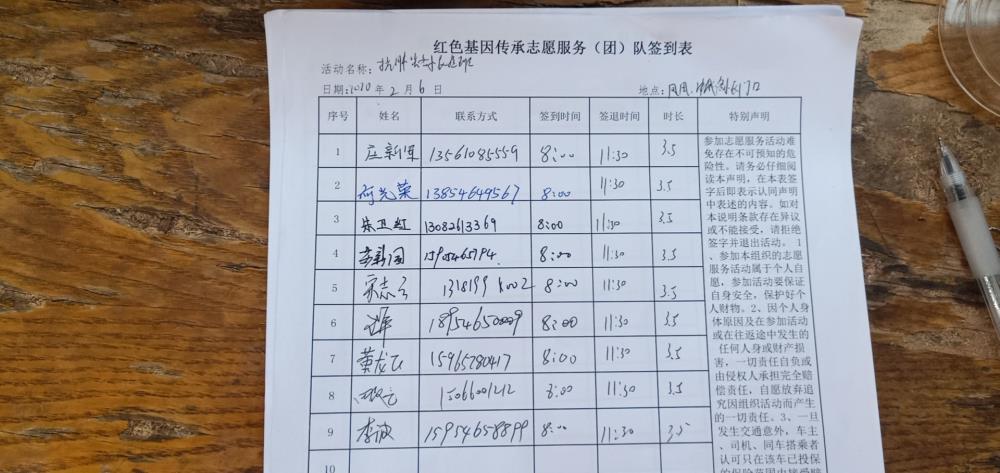 红色基因传承志愿服务（团）队签到表
活动名称：
日期: 年 2 月 6 日 地点：
序号 姓名 联系方式 签到时间 签退时间 时长 特别声明
1 庄新军 13561085559 8:00 11:30 3.5
2 13854649567 8:00 11:30 3.5
3 朱卫红 8:00 11:30 3.5
4 8:00 11:30 3.5
5 宋志云 8:00 11:30 3.5
6 8:00 11:30 3.5
7 黄龙飞 15965280417 8:00 11:30 3.5
8 15066001212 8:00 11:30 3.5
9 李波 15954658899 8:00 11:30 3.5
10
参加志愿服务活动难
免存在不可预知的危
险性。请务必仔细阅
读本声明，在本表签
字后即表示认同声明
中表述的内容。如对
本说明条款存在异议
或不能接受，请拒绝
签字并退出活动。 1
、参加本组织的志愿
服务活动属于个人自
愿，参加活动要保证
自身安全，保护好个
人财物。2、因个人身
体原因及在参加活动
或在往返途中发生的
任何人身或财产损
害，一切责任自负或
由侵权人承担完全赔
偿责任，自愿放弃追
究因组织活动而产生
的一切责任。3、一旦
发生交通意外，车主
、司机、同车搭乘者
认可只在该车已投保